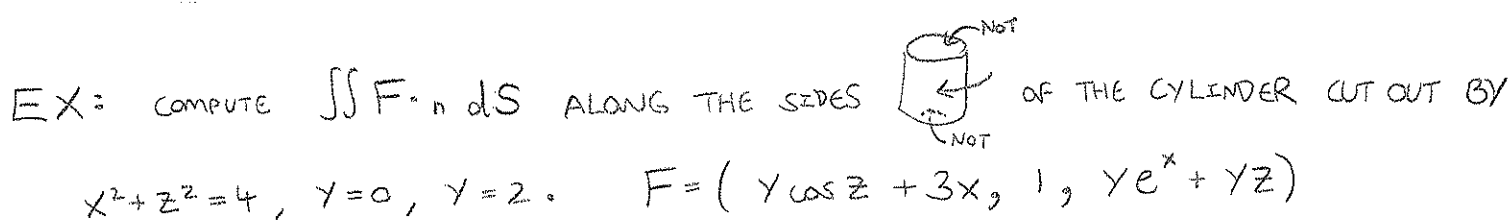 NOT
EX: COMPUTE ∬ F·n dS ALONG THE SIDES OF THE CYLINDER CUT OUT BY
NOT
x²+z²=4, y=0, y=2. F=(y cos z +3x, 1, ye^x + yz)